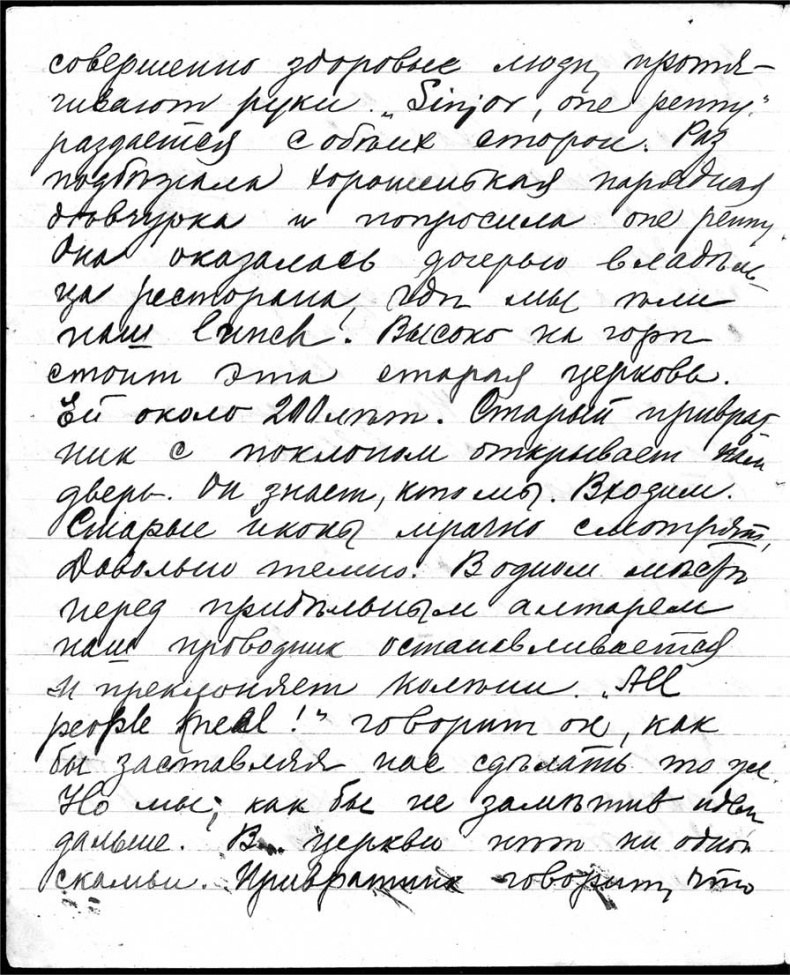 совершенно здоровые люди, протя-
гивают руки. „Sinjor, one penny."
раздается с обоих сторон. Раз
подбѣжала хорошенькая нарядная
дѣвчурка и попросила one penny.
Она оказалась дочерью владѣль-
ца ресторана, гдѣ мы ѣли
наш lunch! Высоко на горѣ
стоит эта старая церковь.
Ей около 200 лѣт. Старый приврат
ник с поклоном открывает нам
дверь. Он знает, кто мы. Входим.
Старые иконы мрачно смотрят,
довольно темно. В одном мѣстѣ
перед придѣльным алтарем
наш проводник останавливается
и преклоняет колѣни. „All
people kneel!" говорит он, как
бы заставляя нас сдѣлать то же.
Но мы, как бы не замѣтив идем
дальше. В церкви нѣт ни одной
скамьи. Привратник говорит, что